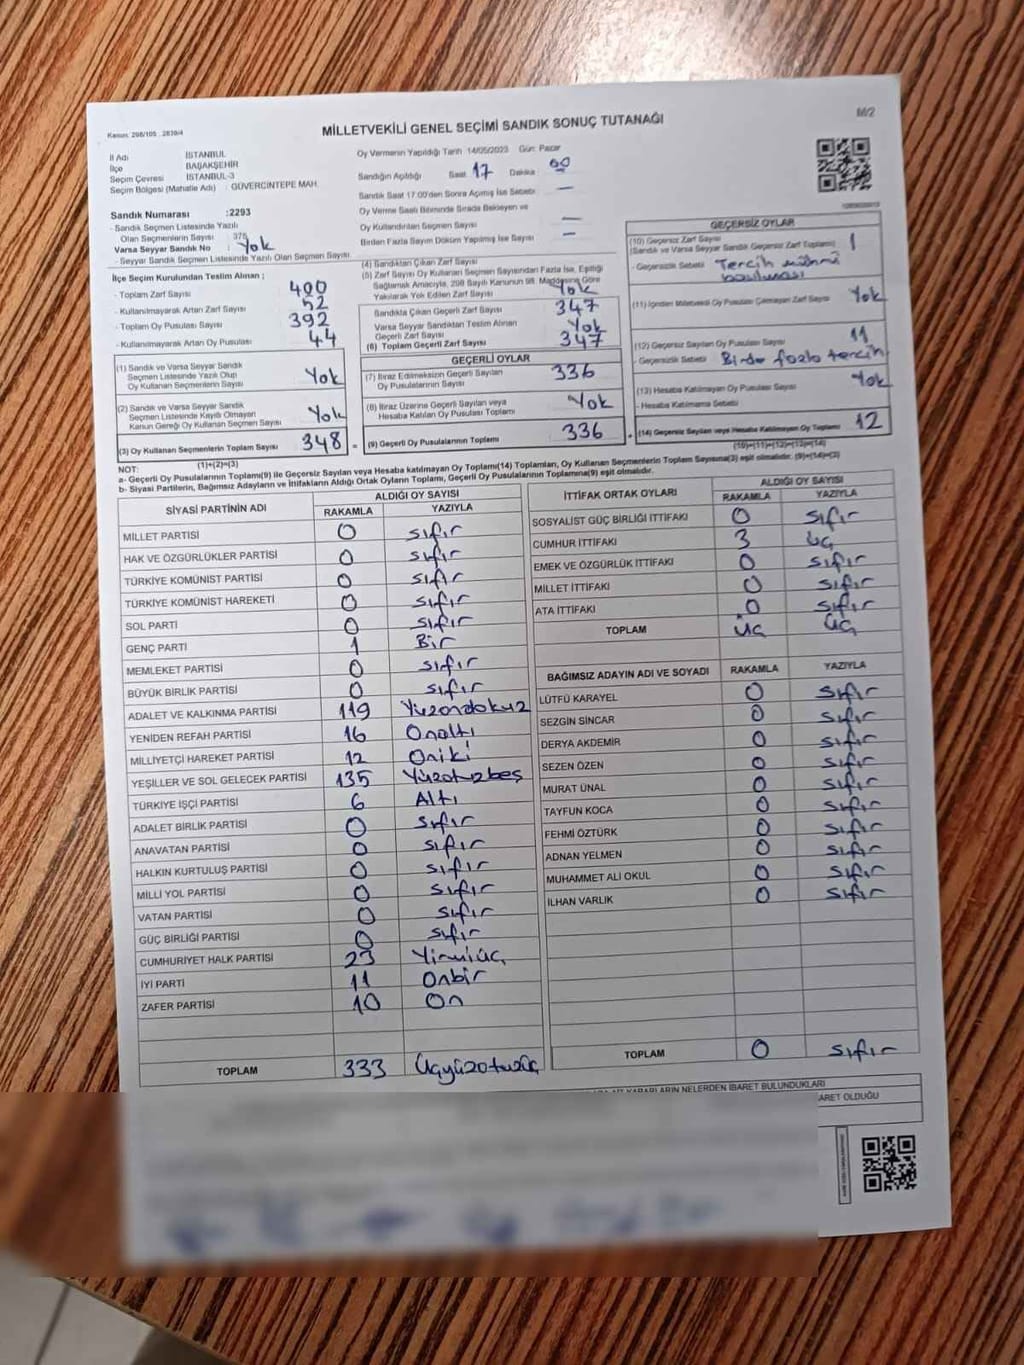 Kanun: 298/105 , 2839/4
MİLLETVEKİLİ GENEL SEÇİMİ SANDIK SONUÇ TUTANAĞI
M/2
İl Adı İSTANBUL
İlçe BAŞAKŞEHİR
Seçim Çevresi İSTANBUL-3
Seçim Bölgesi (Mahalle Adı) : GÜVERCİNTEPE MAH.
Oy Vermenin Yapıldığı Tarih 14/05/2023 Gün: Pazar
Sandığın Açıldığı Saat 17 Dakika 00
Sandık Saat 17:00'den Sonra Açılmış İse Sebebi —
Oy Verme Saati Bitiminde Sırada Bekleyen ve
Oy Kullandırılan Seçmen Sayısı —
Birden Fazla Sayım Döküm Yapılmış İse Sayısı —
Sandık Numarası :2293
- Sandık Seçmen Listesinde Yazılı
Olan Seçmenlerin Sayısı : 375
Varsa Seyyar Sandık No : Yok
- Seyyar Sandık Seçmen Listesinde Yazılı Olan Seçmen Sayısı
İlçe Seçim Kurulundan Teslim Alınan ;
- Toplam Zarf Sayısı 400
- Kullanılmayarak Artan Zarf Sayısı 52
- Toplam Oy Pusulası Sayısı 392
- Kullanılmayarak Artan Oy Pusulası 44
(1) Sandık ve Varsa Seyyar Sandık
Seçmen Listesinde Yazılı Olup
Oy Kullanan Seçmenlerin Sayısı Yok
(2) Sandık ve Varsa Seyyar Sandık
Seçmen Listesinde Kaydı Olmayan
Kanun Gereği Oy Kullanan Seçmen Sayısı Yok
(3) Oy Kullanan Seçmenlerin Toplam Sayısı 348 =
(1)+(2)=(3)
(4) Sandıktan Çıkan Zarf Sayısı
(5) Zarf Sayısı Oy Kullanan Seçmen Sayısından Fazla İse, Eşitliği
Sağlamak Amacıyla, 298 Sayılı Kanunun 98. Maddesine Göre
Yakılarak Yok Edilen Zarf Sayısı Yok
Sandıkta Çıkan Geçerli Zarf Sayısı 347
Varsa Seyyar Sandıktan Teslim Alınan
Geçerli Zarf Sayısı Yok
(6) Toplam Geçerli Zarf Sayısı 347
GEÇERLİ OYLAR
(7) İtiraz Edilmeksizin Geçerli Sayılan
Oy Pusulalarının Sayısı 336
(8) İtiraz Üzerine Geçerli Sayılan veya
Hesaba Katılan Oy Pusulası Toplamı Yok
(9) Geçerli Oy Pusulalarının Toplamı 336 +
GEÇERSİZ OYLAR
(10) Geçersiz Zarf Sayısı
(Sandık ve Varsa Seyyar Sandık Geçersiz Zarf Toplamı) 1
- Geçersizlik Sebebi Tercih mührü
(11) İçinden Milletvekili Oy Pusulası Çıkmayan Zarf Sayısı Yok
(12) Geçersiz Sayılan Oy Pusulası Sayısı 11
- Geçersizlik Sebebi Birde fazla tercih
(13) Hesaba Katılmayan Oy Pusulası Sayısı Yok
- Hesaba Katılmama Sebebi
(14) Geçersiz Sayılan veya Hesaba Katılmayan Oy Toplamı 12
(10)+(11)+(12)+(13)=(14)
NOT:
a- Geçerli Oy Pusulalarının Toplamı(9) ile Geçersiz Sayılan veya Hesaba katılmayan Oy Toplamı(14) Toplamları, Oy Kullanan Seçmenlerin Toplam Sayısına(3) eşit olmalıdır. (9)+(14)=(3)
b- Siyasi Partilerin, Bağımsız Adayların ve İttifakların Aldığı Ortak Oyların Toplamı, Geçerli Oy Pusulalarının Toplamına(9) eşit olmalıdır.
SİYASİ PARTİNİN ADI ALDIĞI OY SAYISI
RAKAMLA YAZIYLA
MİLLET PARTİSİ 0 sıfır
HAK VE ÖZGÜRLÜKLER PARTİSİ 0 sıfır
TÜRKİYE KOMÜNİST PARTİSİ 0 sıfır
TÜRKİYE KOMÜNİST HAREKETİ 0 sıfır
SOL PARTİ 0 sıfır
GENÇ PARTİ 1 Bir
MEMLEKET PARTİSİ 0 sıfır
BÜYÜK BİRLİK PARTİSİ 0 sıfır
ADALET VE KALKINMA PARTİSİ 119 Yüzondokuz
YENİDEN REFAH PARTİSİ 16 Onaltı
MİLLİYETÇİ HAREKET PARTİSİ 12 Oniki
YEŞİLLER VE SOL GELECEK PARTİSİ 135 Yüzotuzbeş
TÜRKİYE İŞÇİ PARTİSİ 6 Altı
ADALET BİRLİK PARTİSİ 0 sıfır
ANAVATAN PARTİSİ 0 sıfır
HALKIN KURTULUŞ PARTİSİ 0 sıfır
MİLLİ YOL PARTİSİ 0 sıfır
VATAN PARTİSİ 0 sıfır
GÜÇ BİRLİĞİ PARTİSİ 0 sıfır
CUMHURİYET HALK PARTİSİ 23 Yirmiüç
İYİ PARTİ 11 Onbir
ZAFER PARTİSİ 10 On
TOPLAM 333 Üçyüzotuzüç
İTTİFAK ORTAK OYLARI ALDIĞI OY SAYISI
RAKAMLA YAZIYLA
SOSYALİST GÜÇ BİRLİĞİ İTTİFAKI 0 sıfır
CUMHUR İTTİFAKI 3 üç
EMEK VE ÖZGÜRLÜK İTTİFAKI 0 sıfır
MİLLET İTTİFAKI 0 sıfır
ATA İTTİFAKI 0 sıfır
TOPLAM üç üç
BAĞIMSIZ ADAYIN ADI VE SOYADI RAKAMLA YAZIYLA
LÜTFÜ KARAYEL 0 sıfır
SEZGİN SİNCAR 0 sıfır
DERYA AKDEMİR 0 sıfır
SEZEN ÖZEN 0 sıfır
MURAT ÜNAL 0 sıfır
TAYFUN KOCA 0 sıfır
FEHMİ ÖZTÜRK 0 sıfır
ADNAN YELMEN 0 sıfır
MUHAMMET ALİ OKUL 0 sıfır
İLHAN VARLIK 0 sıfır
TOPLAM 0 sıfır
NELERDEN İBARET BULUNDUKLARI
OLDUĞU